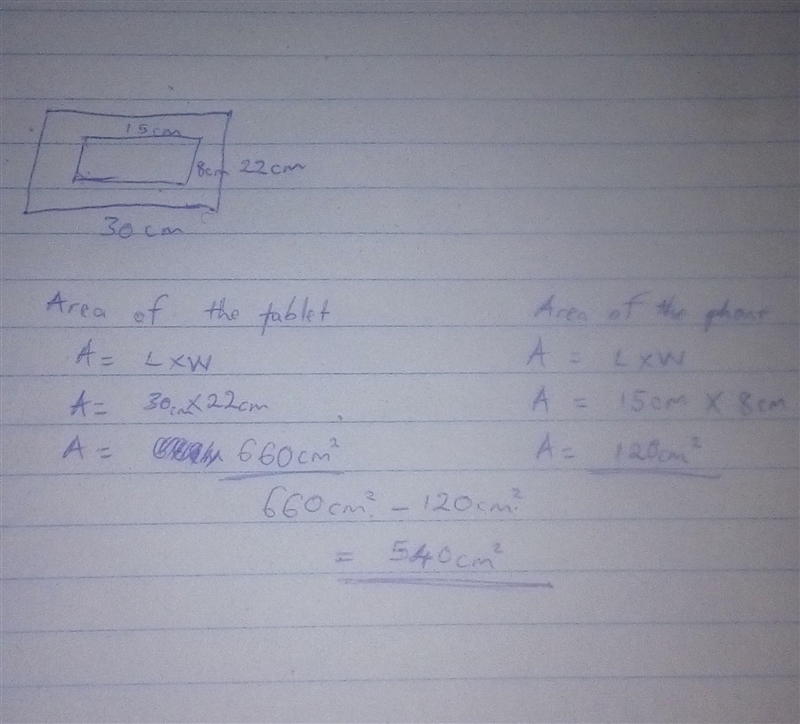 15cm
8cm 22cm
30cm
Area of the tablet
A = L×W
A = 30cm×22cm
A = 660cm²
Area of the phone
A = L×W
A = 15cm × 8cm
A = 120cm²
660cm² – 120cm²
= 540cm²